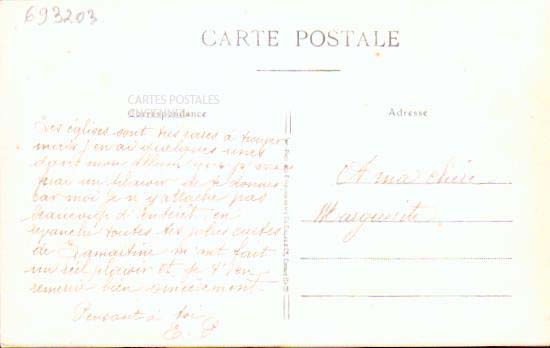 693203
CARTE POSTALE
CARTES POSTALES
ANCIENNES
Correspondance
Adresse
Les églises sont très rares à trouver
mais j'en ai quelques unes
dans mon Album
un plaisir de te donner
car moi je n'y attache pas
beaucoup d'intérêt, en
revanche toutes tes jolies cartes
de Lamartine m'ont fait
un réel plaisir et je t'en
remercie bien sincèrement.
Pensant à toi
E. P
A ma chère
Marguerite